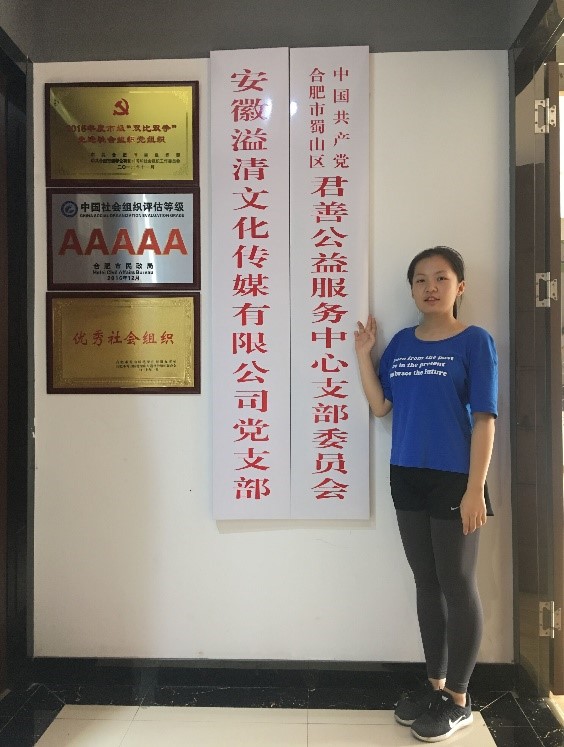 2016年度市级“双比双争"
先进社会组织党组织
中国社会组织评估等级
CHINA SOCIAL ORGANIZATION EVALUATION GRADE
AAAAA
合肥市民政局
Hefei Civil Affairs Bureau
2016年12月
优秀社会组织
安徽溢清文化传媒有限公司党支部
中国共产党
合肥市蜀山区
君善公益服务中心支部委员会
learn from the past
in the present
embrace the future